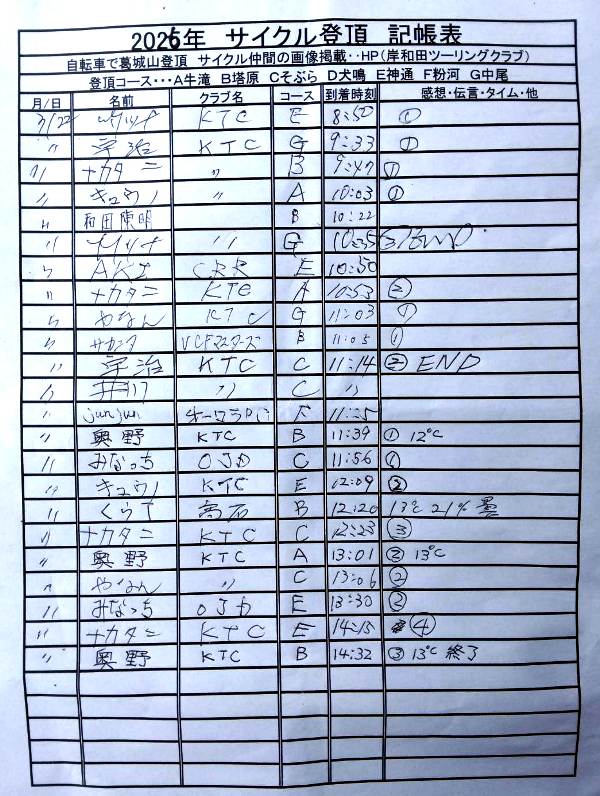 2026年 サイクル登頂 記帳表
自転車で葛城山登頂 サイクル仲間の画像掲載・・HP(岸和田ツーリングクラブ)
登頂コース・・・A牛滝 B塔原 Cそぶら D犬鳴 E神通 F粉河 G中尾
月/日 名前 クラブ名 コース 到着時刻 感想・伝言・タイム・他
3/22 KTC E 8:50 ①
〃 宇治 KTC G 9:33 ①
〃 ナカタニ 〃 B 9:47 ①
〃 キュウノ 〃 A 10:03 ①
〃 和田陳明 B 10:22
〃 〃 G 10:35
〃 AKI CRR E 10:50
〃 ナカタニ KTC A 10:53 ②
〃 やなん KTC G 11:03 ①
〃 サカンタ VCFマスターズ B 11:05 ①
〃 宇治 KTC C 11:14 ② END
〃 井川 〃 C 〃
〃 junjun F 11:25
〃 奥野 KTC B 11:39 ① 12℃
〃 みなっち OJD C 11:56 ①
〃 キュウノ KTC E 12:09 ②
〃 くらT 高石 B 12:20 13℃ 21% 曇
〃 ナカタニ KTC C 12:23 ③
〃 奥野 KTC A 13:01 ② 13℃
〃 やなん 〃 C 13:06 ②
〃 みなっち OJD E 13:30 ②
〃 ナカタニ KTC E 14:15 ④
〃 奥野 KTC B 14:32 ③ 13℃ 終了